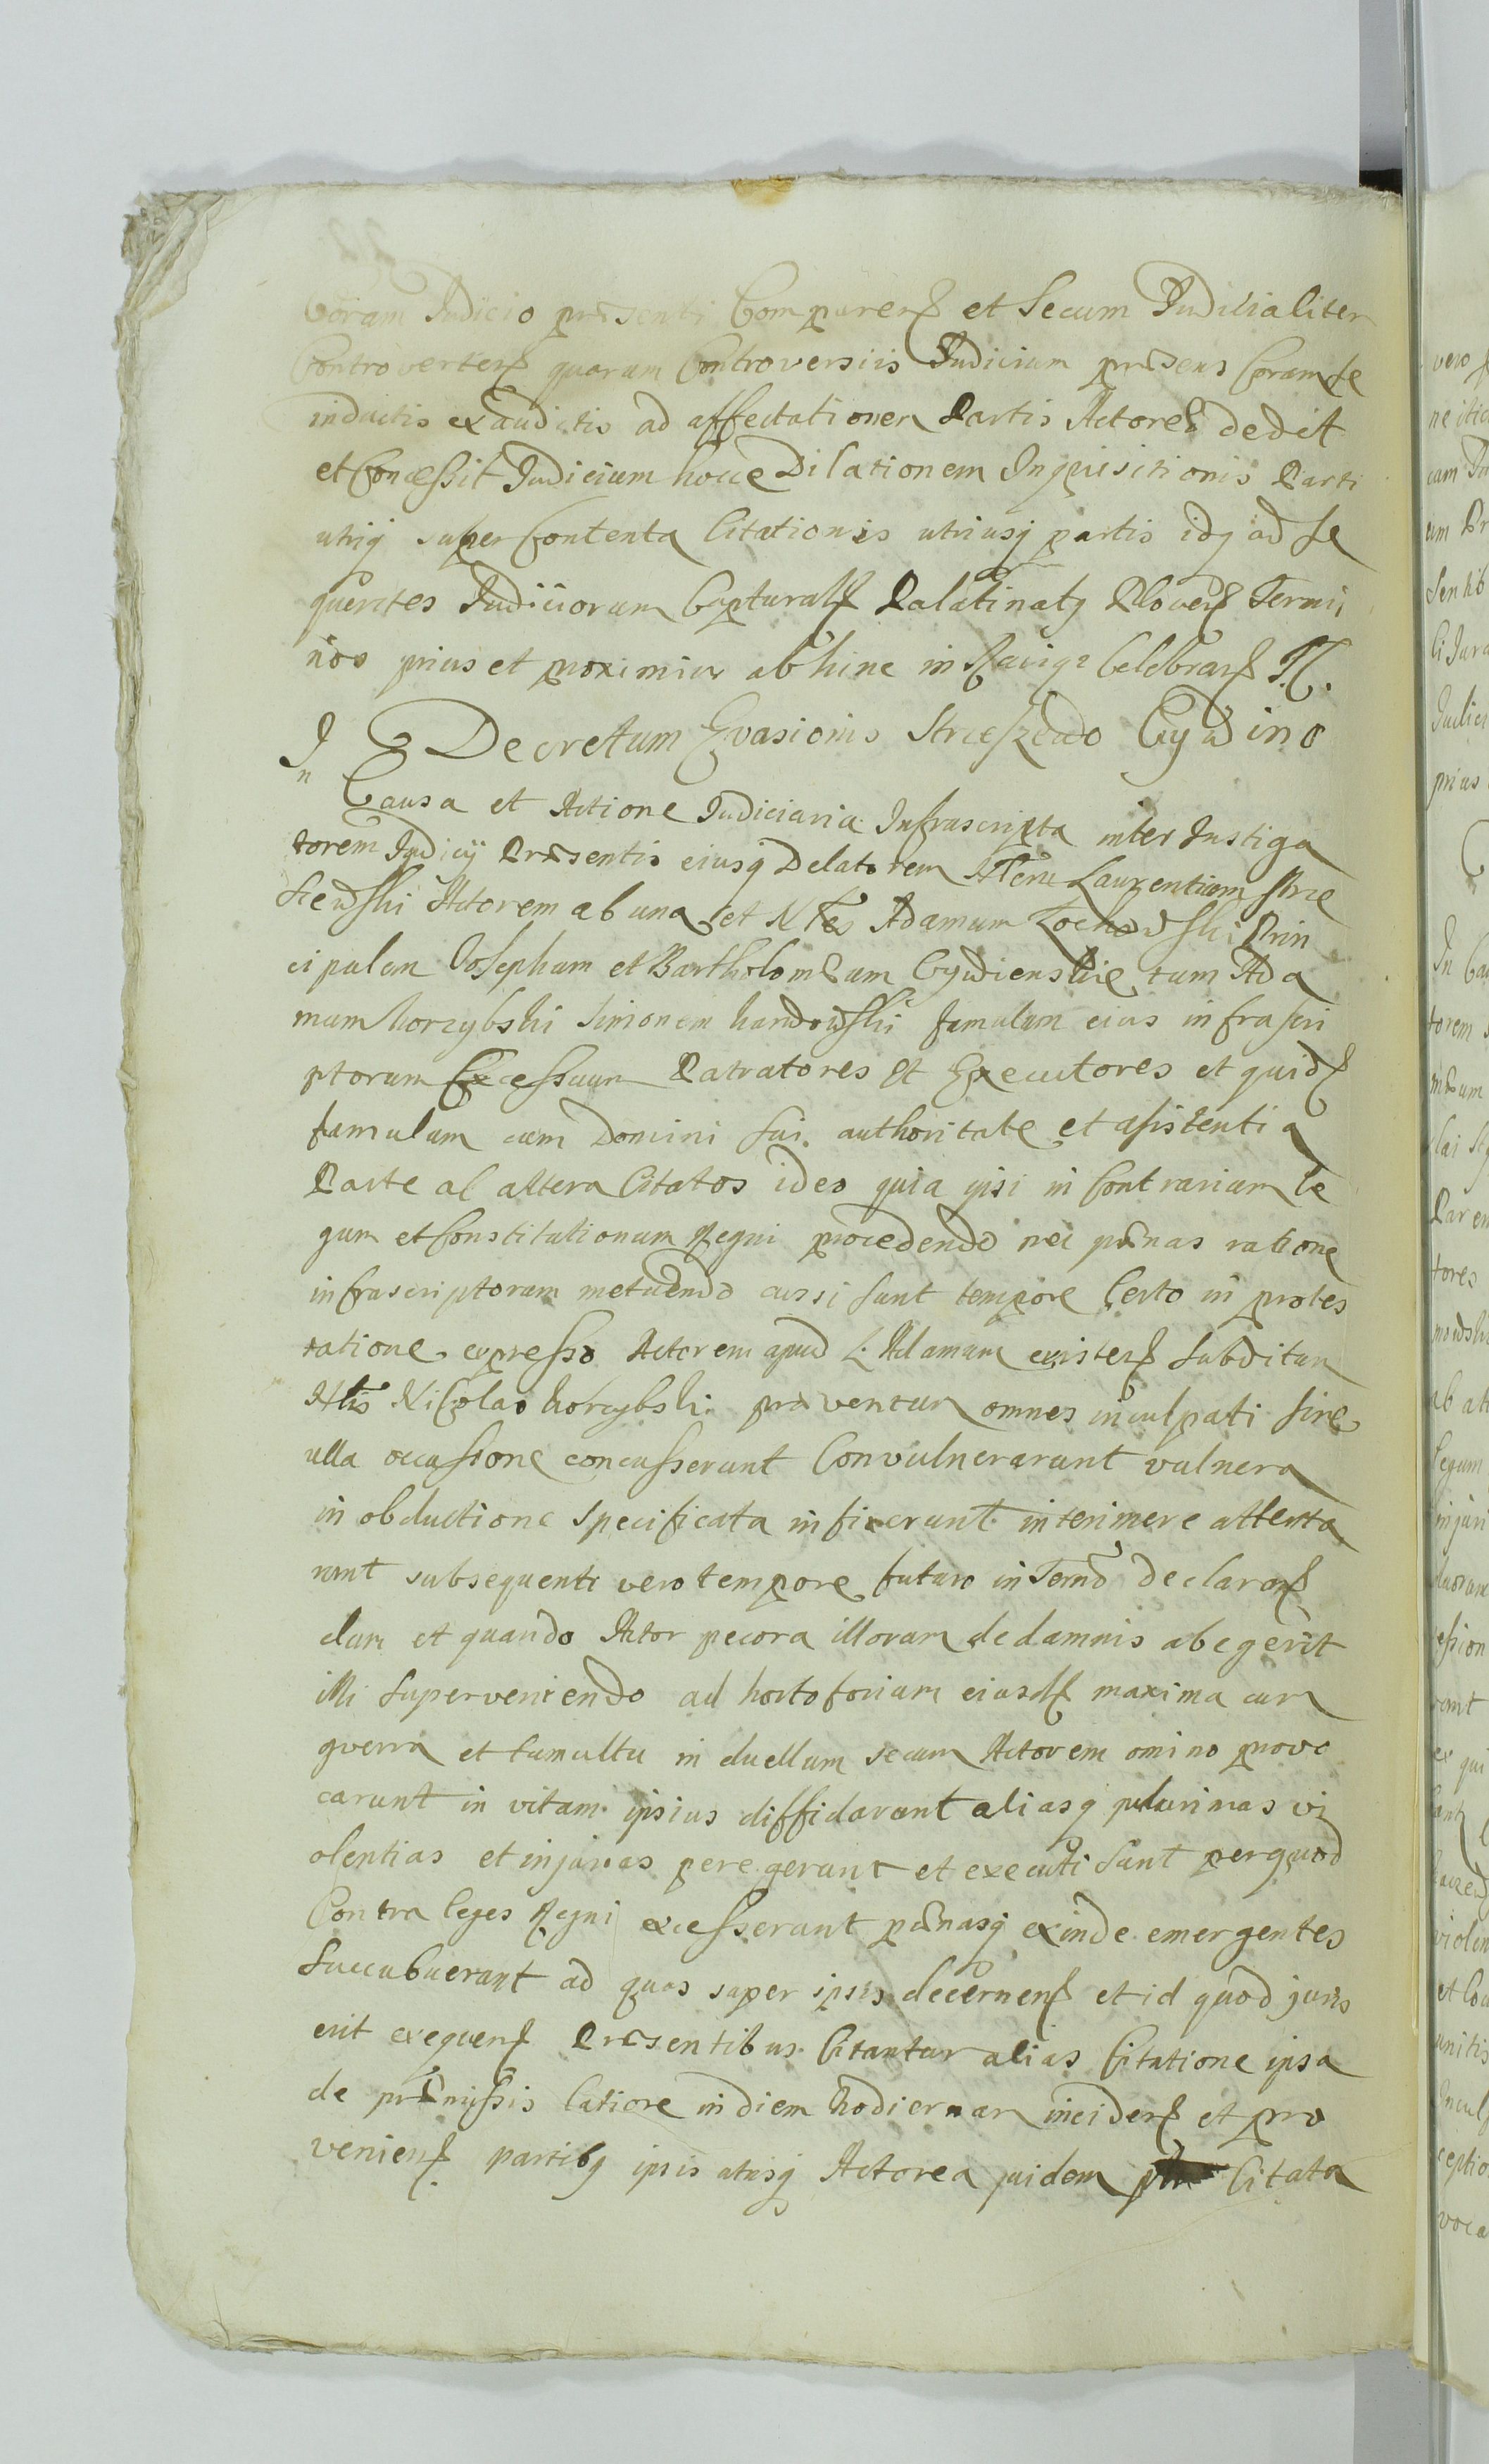 Coram Judicio præsenti Comparen et Secum Judicialiter
Controverten quarum Controversiis Judicium præsens Coram se
inductis exauditis ad affectationem Partis Actoreæ dedit
et Concessit Judicium hocce Dilationem Inquisitionis Parti
utriq super Contenta Citationis utriusq partis idq ad se
quentes Judiciorum Capturaln Palatinatq Plocen Termi
nos prius et proximius ab hinc in Raciąż Celebran
Decretum Evasionis Cywino
In Causa et Actione Judiciaria Infrascripta inter Instiga
torem Judicij Præsentis eiusq Delatorem Laurentium Strze
szewski Actorem ab una et Nles Adamum Prin
cipalem Josephum et Bartholomæum Cywienskie tum Ada
mum Korzybski Simonem famulum eius infrascri
ptorum Excessuum Patratores et Executores et quidn
famulum cum Domini sui authoritate et asistentia
Parte al altera Citatos ideo quia ipsi in Contrarium le
gum et Constitutionum Regni procedendo nec pænas ratione
infrascriptorum metuendo ausi sunt tempore Certo in protes
tatione expresso Actorem apud Adamum existen subditum
Nlis Nicolao Korzybski præventum omnes inculpati sine
ulla occasione concusserunt Convulnerarunt vulnera
in obductione specificata inflixerunt interimere attenta
runt subsequenti vero tempore futuro in Termo declaron
dum et quando Actor pecora illorum de damnis abegerit
illi superveniendo ad eiusdn maxima cum
guerra et tumultu in duellum secum Actorem omino provo
carunt in vitam ipsius diffidarunt aliasq plurimas vi
olentias et injurias peregerunt et executi sunt perquod
Contra leges Regni excesserunt pænasq exinde emergentes
succubuerunt ad quas super ipsis decernen et id quod juris
erit exequen Præsentibus Citantur alias Citatione ipsa
de præmissis latiore in diem hodiernam inciden et pro
venien partibq ipsis utrisq Actorea quidem Citata